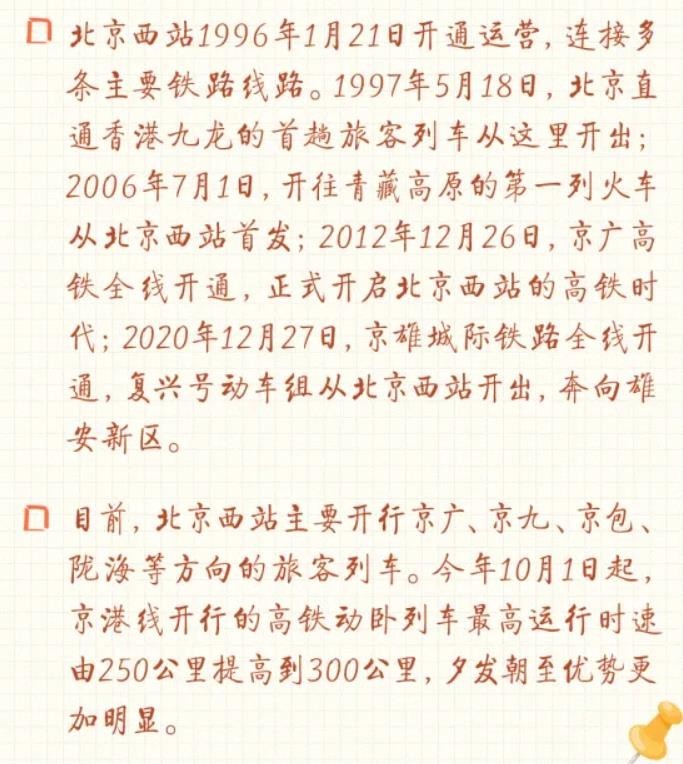 北京西站1996年1月21日开通运营，连接多
条主要铁路线路。1997年5月18日，北京直
通香港九龙的首趟旅客列车从这里开出；
2006年7月1日，开往青藏高原的第一列火车
从北京西站首发；2012年12月26日，京广高
铁全线开通，正式开启北京西站的高铁时
代；2020年12月27日，京雄城际铁路全线开
通，复兴号动车组从北京西站开出，奔向雄
安新区。
目前，北京西站主要开行京广、京九、京包、
陇海等方向的旅客列车。今年10月1日起，
京港线开行的高铁动卧列车最高运行时速
由250公里提高到300公里，夕发朝至优势更
加明显。